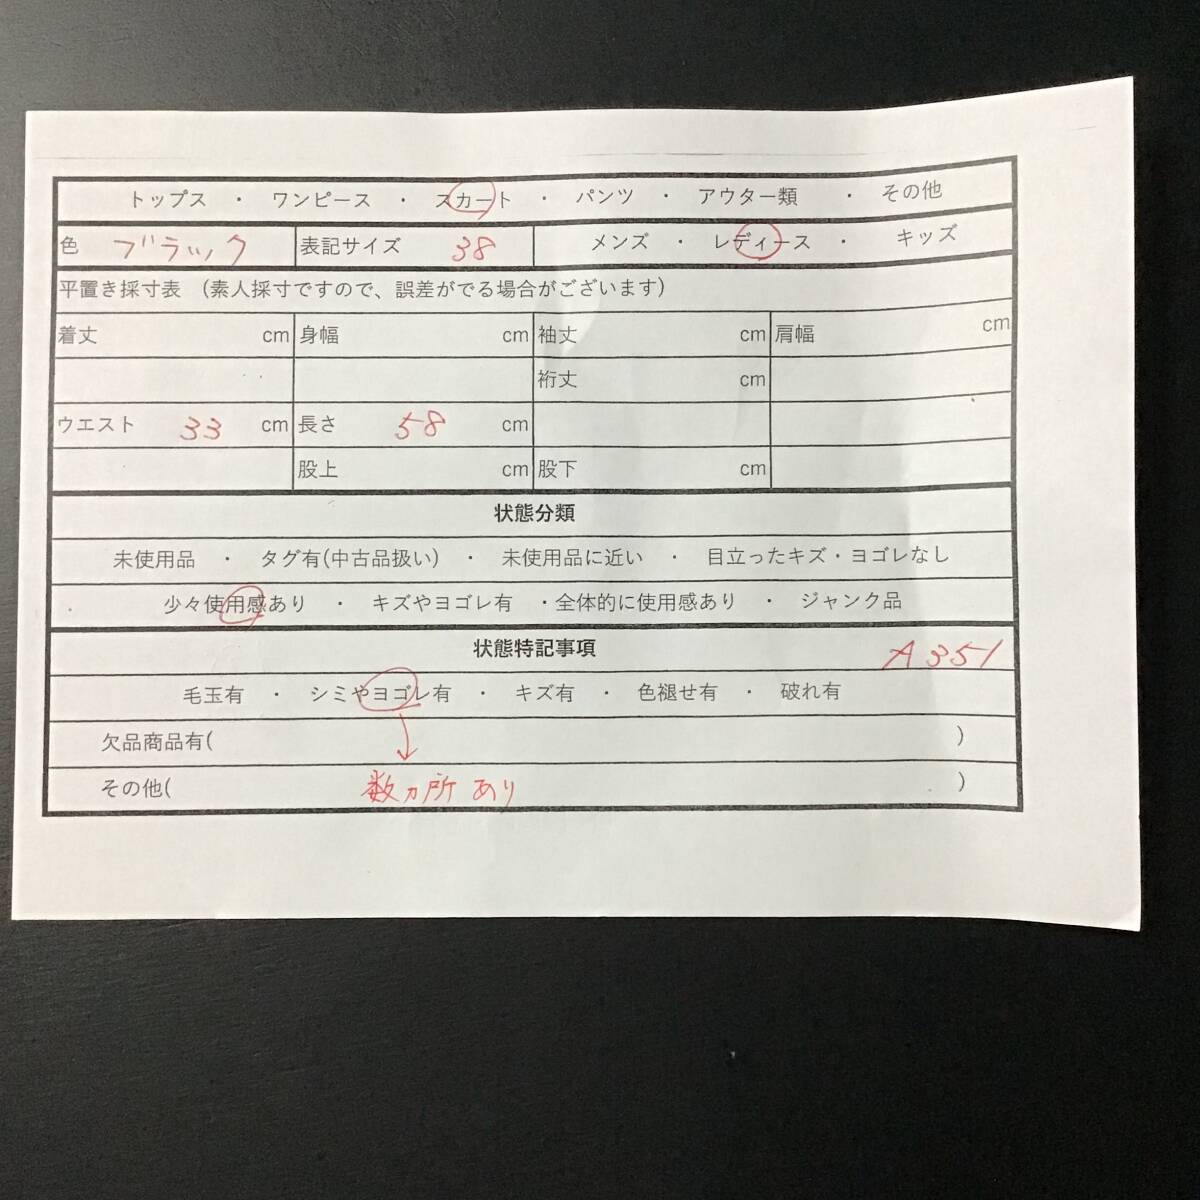 トップス ・ ワンピース ・ スカート ・ パンツ ・ アウター類 ・ その他
色 ブラック 表記サイズ 38 メンズ ・ レディース ・ キッズ
平置き採寸表 (素人採寸ですので、誤差がでる場合がございます)
着丈 cm 身幅 cm 袖丈 cm 肩幅 cm
裄丈 cm
ウエスト 33 cm 長さ 58 cm
股上 cm 股下 cm
状態分類
未使用品 ・ タグ有(中古品扱い) ・ 未使用品に近い ・ 目立ったキズ・ヨゴレなし
少々使用感あり ・ キズやヨゴレ有 ・全体的に使用感あり ・ ジャンク品
状態特記事項 A351
毛玉有 ・ シミやヨゴレ有 ・ キズ有 ・ 色褪せ有 ・ 破れ有
欠品商品有( )
その他( 数ヵ所あり )